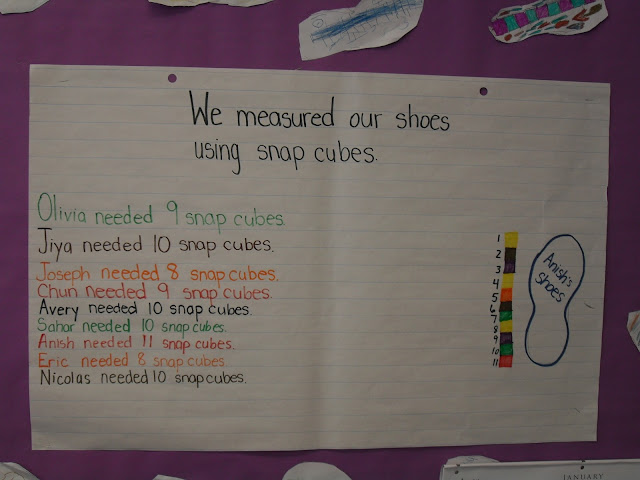 We measured our shoes
using snap cubes.
Olivia needed 9 snap cubes.
Jiya needed 10 snap cubes.
Joseph needed 8 snap cubes.
Chun needed 9 snap cubes.
Avery needed 10 snap cubes.
Sahar needed 10 snap cubes.
Anish needed 11 snap cubes.
Eric needed 8 snap cubes.
Nicolas needed 10 snap cubes.
1
2
3
4
5
6
7
8
9
10
11
Anish's
shoes
JANUARY